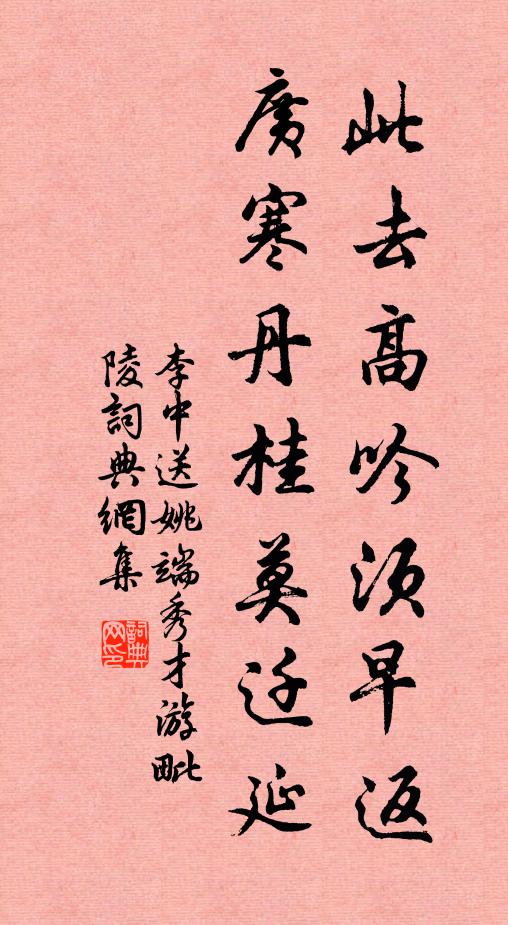 此去高吟須早返
廣寒丹桂莫迁延
李中送姚端秀才游毗
陵詞典網集
詞典
网印